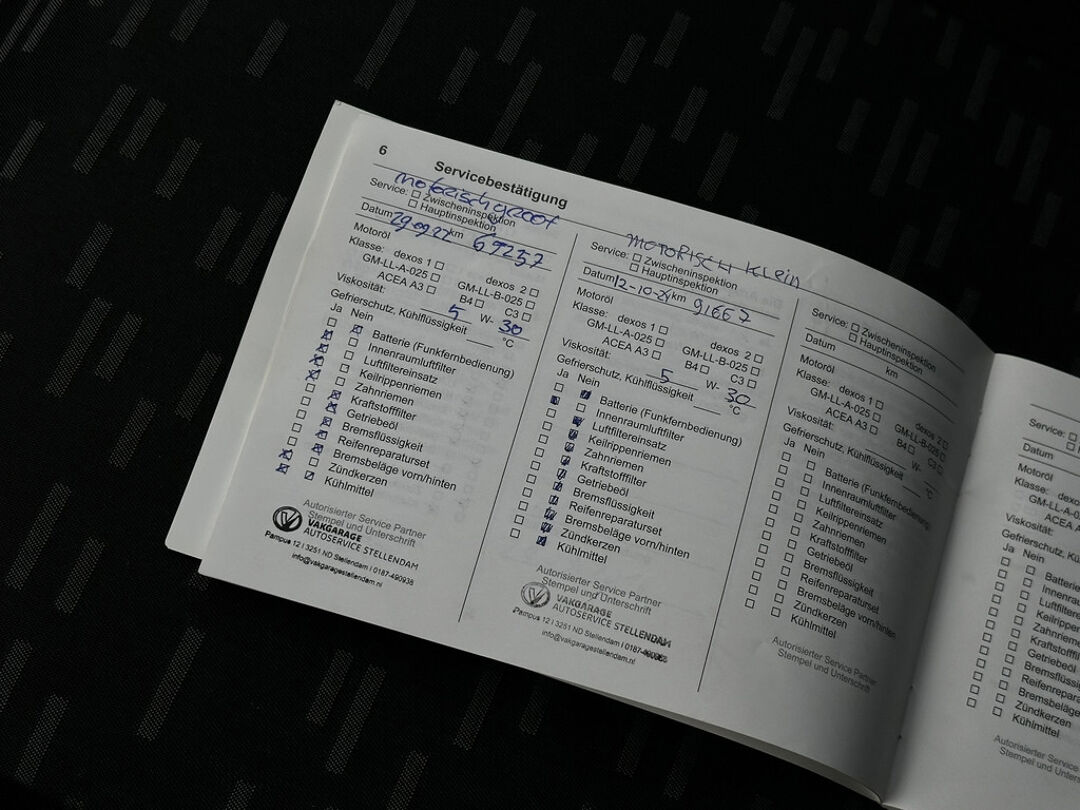 6 Servicebestätigung
motorisch groot
Service: Zwischeninspektion
Hauptinspektion
Datum 29 09 22 km 69257
Motoröl
Klasse: dexos 1 dexos 2
GM-LL-A-025 GM-LL-B-025
ACEA A3 B4 C3
Viskosität: 5 W- 30
Gefrierschutz, Kühlflüssigkeit °C
Ja Nein
Batterie (Funkfernbedienung)
Innenraumluftfilter
Luftfiltereinsatz
Keilrippenriemen
Zahnriemen
Kraftstofffilter
Getriebeöl
Bremsflüssigkeit
Reifenreparaturset
Bremsbeläge vorn/hinten
Zündkerzen
Kühlmittel
Autorisierter Service Partner
Stempel und Unterschrift
VAKGARAGE
AUTOSERVICE STELLENDAM
Pampus 12 I 3251 ND Stellendam I 0187-490938
info@vakgaragestellendam.nl
MOTORISCH Klein
Service: Zwischeninspektion
Hauptinspektion
Datum 12-10-24 km 91667
Motoröl
Klasse: dexos 1 dexos 2
GM-LL-A-025 GM-LL-B-025
ACEA A3 B4 C3
Viskosität: 5 W- 30
Gefrierschutz, Kühlflüssigkeit °C
Ja Nein
Batterie (Funkfernbedienung)
Innenraumluftfilter
Luftfiltereinsatz
Keilrippenriemen
Zahnriemen
Kraftstofffilter
Getriebeöl
Bremsflüssigkeit
Reifenreparaturset
Bremsbeläge vorn/hinten
Zündkerzen
Kühlmittel
Autorisierter Service Partner
Stempel und Unterschrift
VAKGARAGE
AUTOSERVICE STELLENDAM
Pampus 12 I 3251 ND Stellendam I
info@vakgaragestellendam.nl
Service: Zwischeninspektion
Hauptinspektion
Datum km
Motoröl
Klasse: dexos 1 dexos 2
GM-LL-A-025 GM-LL-B-025
ACEA A3 B4 C3
Viskosität: W-
Gefrierschutz, Kühlflüssigkeit °C
Ja Nein
Batterie (Funkfernbedienung)
Innenraumluftfilter
Luftfiltereinsatz
Keilrippenriemen
Zahnriemen
Kraftstofffilter
Getriebeöl
Bremsflüssigkeit
Reifenreparaturset
Bremsbeläge vorn/hinten
Zündkerzen
Kühlmittel
Autorisierter Service Partner
Stempel und Unterschrift
Service:
Datum
Motoröl
Klasse: dexo
GM-LL-A-0
ACEA A
Viskosität:
Gefrierschutz, Kü
Ja Nein
Batterie
Innenra
Luftfilte
Keilripp
Zahnrie
Kraftstofff
Getriebeöl
Bremsflüssi
Reifenrepara
Bremsbeläge
Zündkerzen
Kühlmittel
Autorisierter Service
Stempel und U